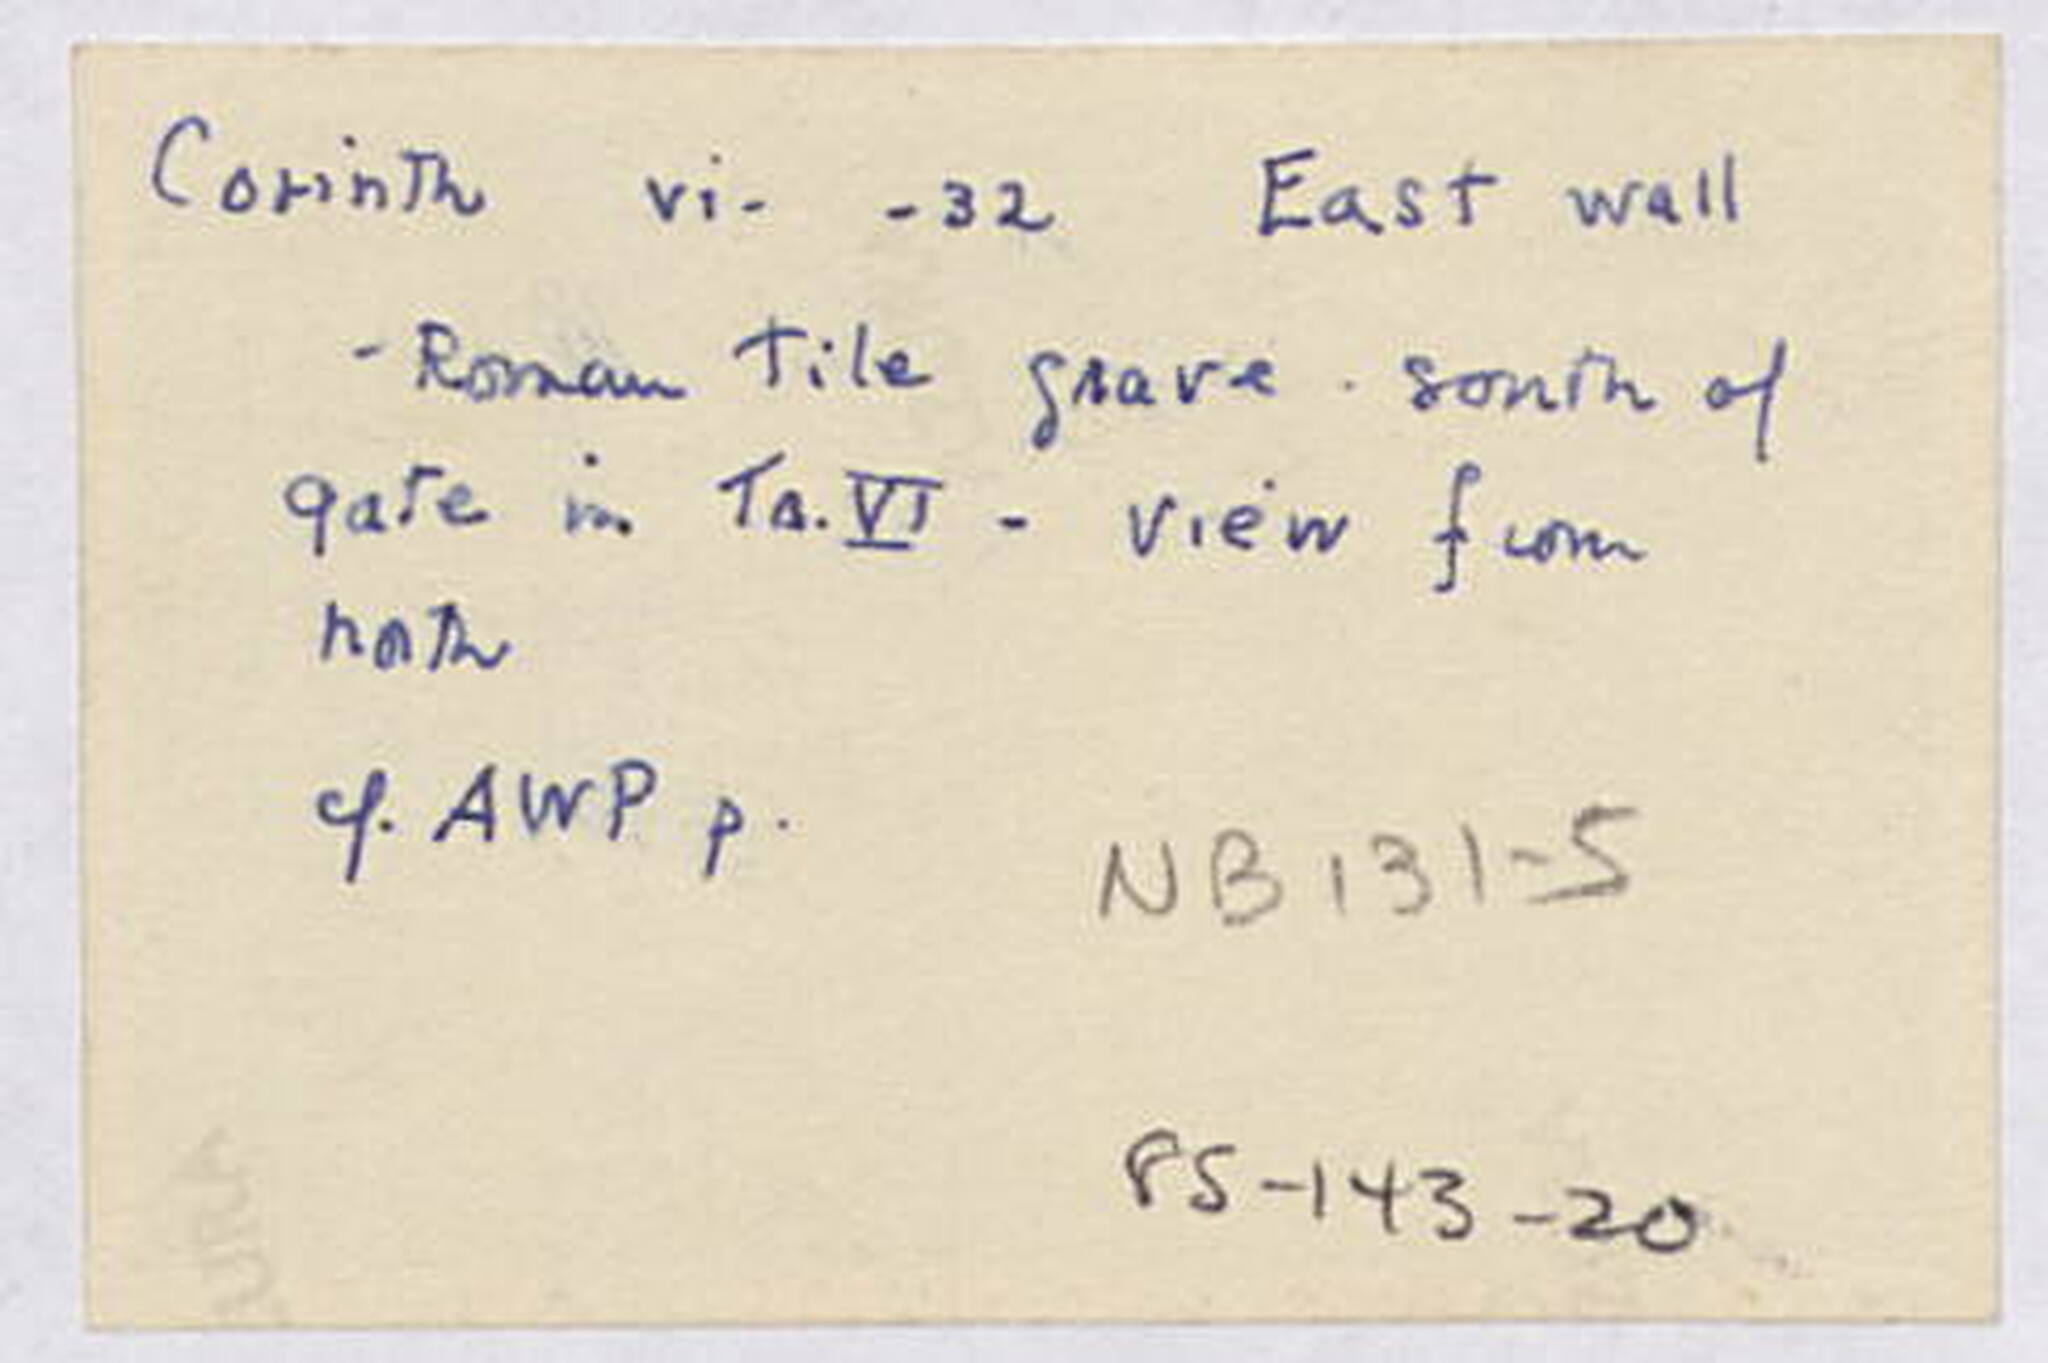 Corinth vi- -32 East wall
- Roman Tile grave . south of
gate in Tr. VI - view from
north
cf. AWP p.
NB 131-5
PS-143-20